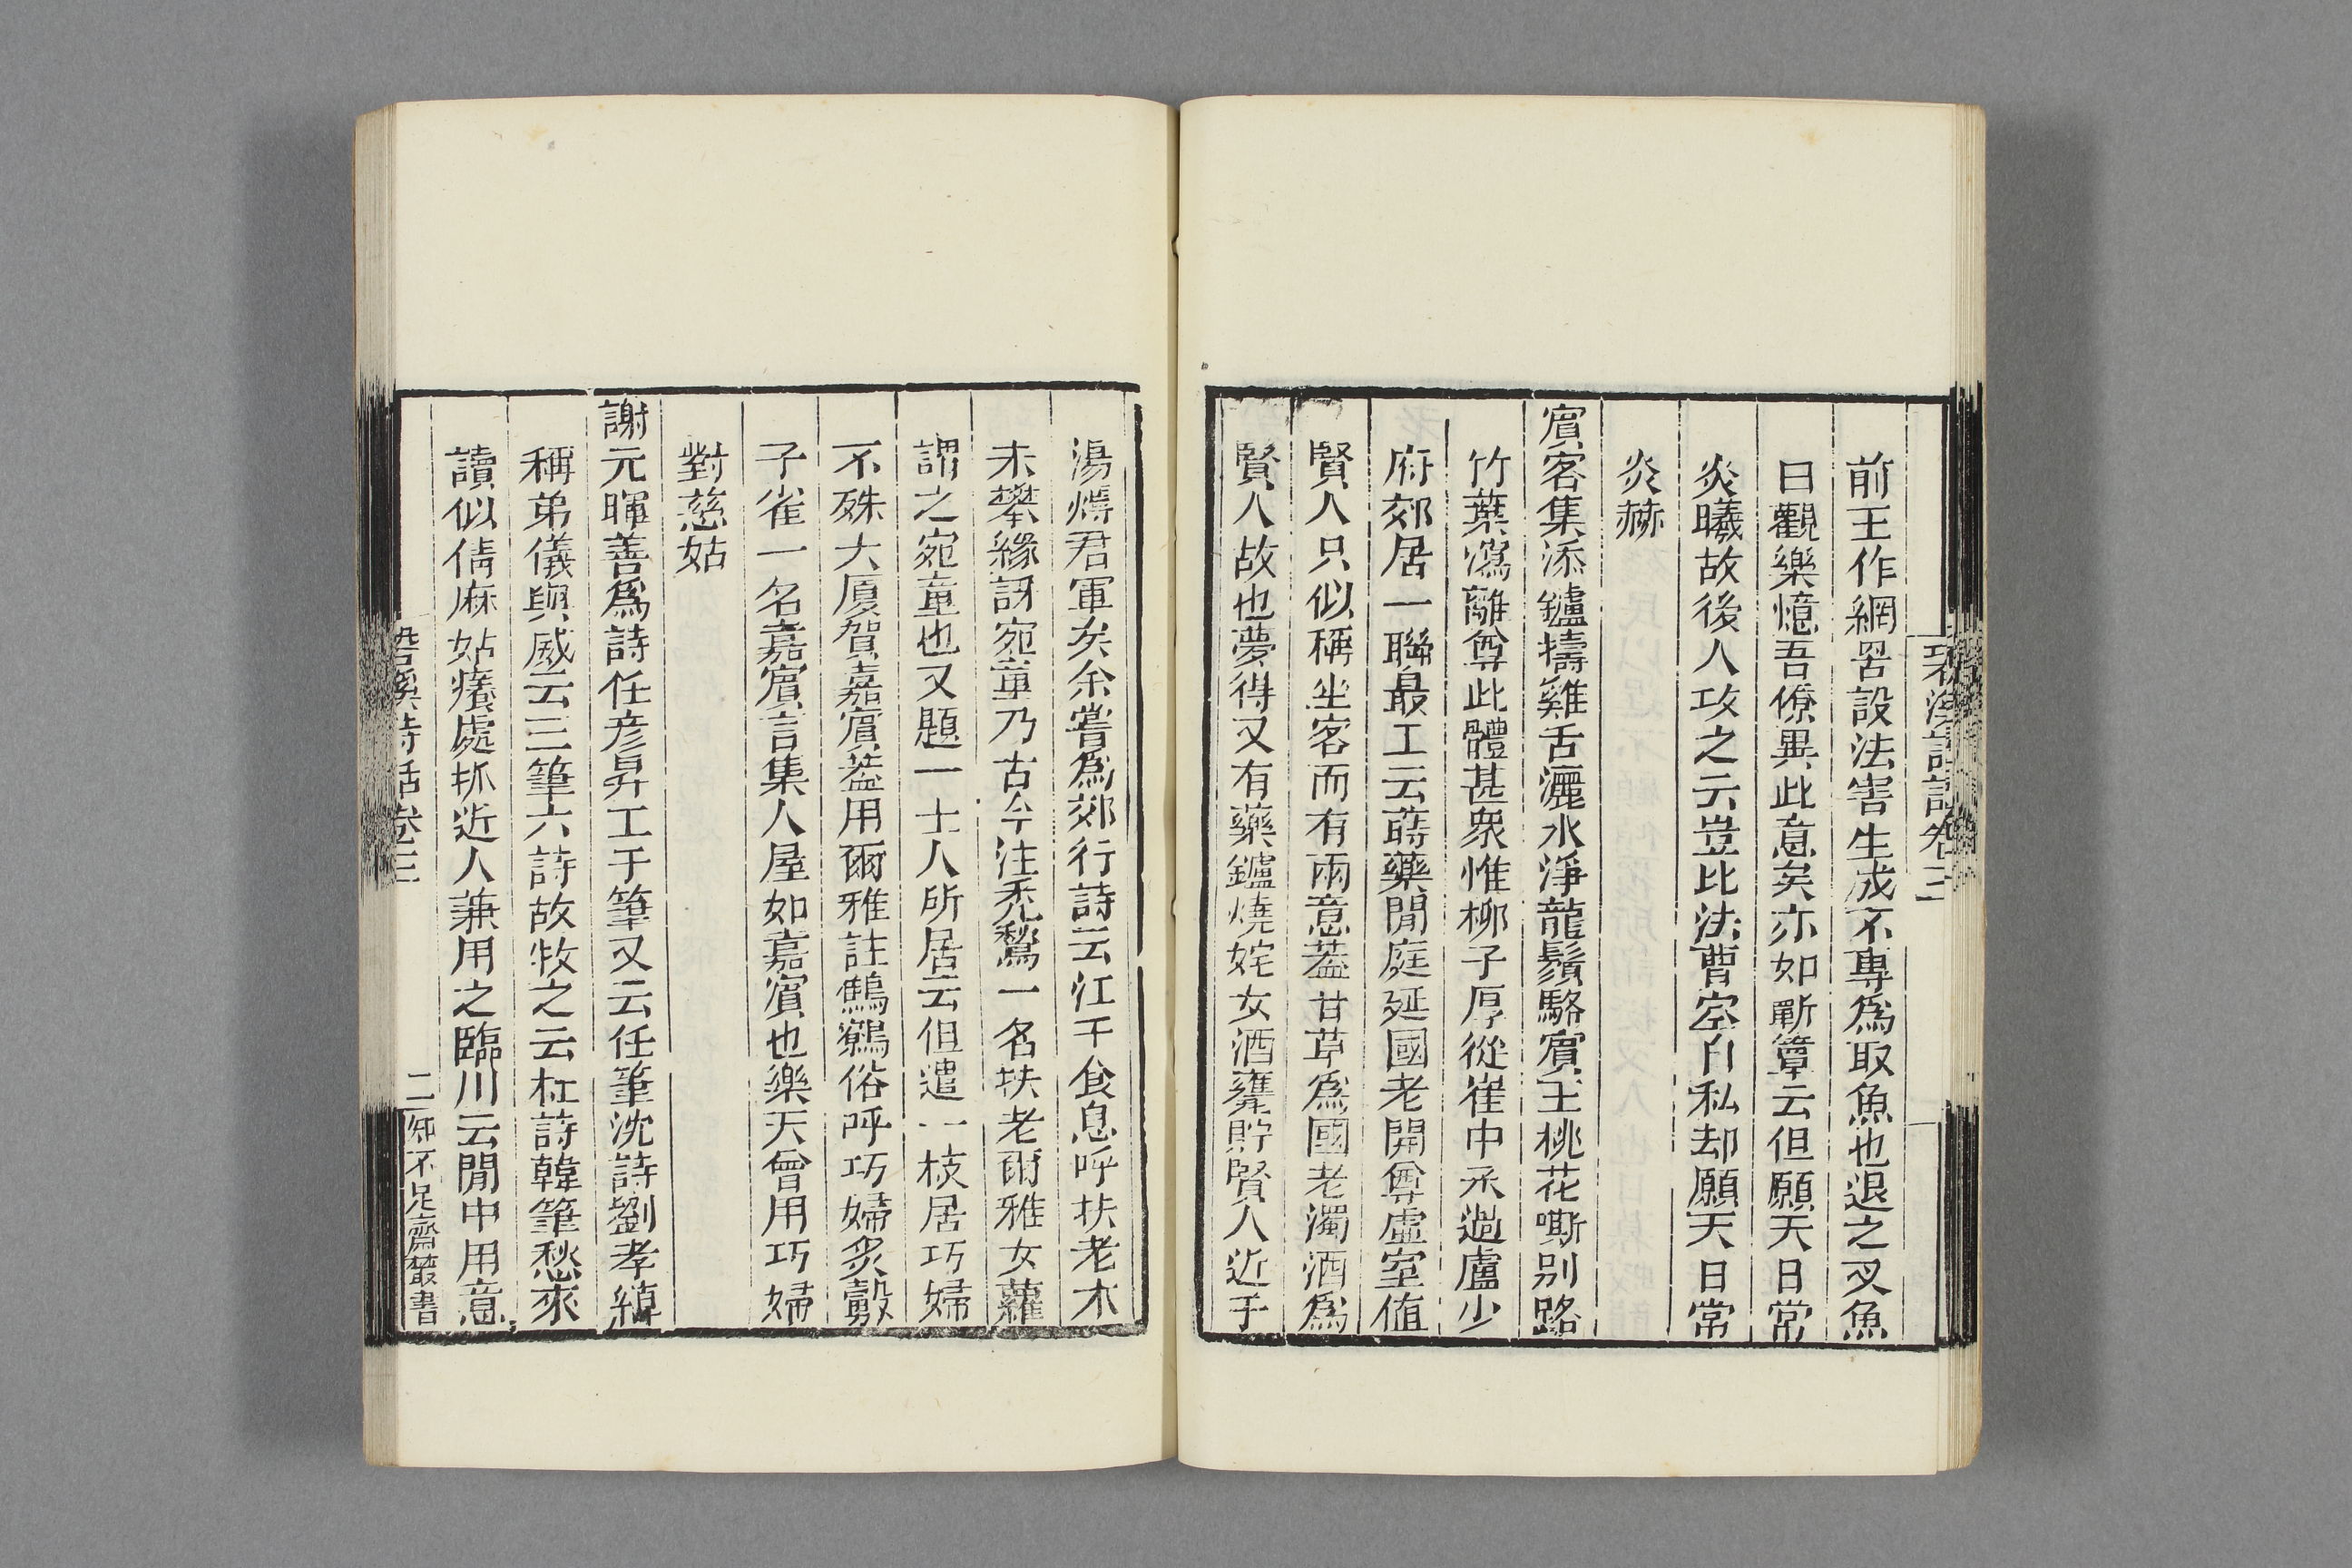 前王作網罟設法害生成不專爲取魚也退之叉魚
曰觀樂憶吾僚異此意矣亦如蘄簟云但願天日常
炎曦故後人攻之云豈比法曹空自私却願天日常
炎赫
賓客集添鑪擣雞舌灑水淨龍鬚駱賓王桃花嘶别路
竹葉瀉離尊此體甚衆惟柳子厚從崔中丞過盧少
府郊居一聯最工云蒔藥閒庭延國老開尊虛室值
賢人只似稱坐客而有兩意蓋甘草爲國老濁酒爲
賢人故也夢得又有藥鑪燒姹女酒甕貯賢人近乎
湯燖君軍矣余嘗爲郊行詩云江干食息呼扶老木
末攀緣訝宛童乃古今注禿鶖一名扶老爾雅女蘿
謂之宛童也又題一士人所居云但遣一枝居巧婦
不殊大厦賀嘉賓蓋用爾雅註鷦鷯俗呼巧婦炙轂
子雀一名嘉賓言集人屋如嘉賓也樂天曾用巧婦
對慈姑
謝元暉善爲詩任彦昇工于筆又云任筆沈詩劉孝綽
稱弟儀與威云三筆六詩故牧之云杜詩韓筆愁來
讀似倩麻姑癢處抓近人兼用之臨川云閒中用意
䂬溪詩話卷三
二
知不足齋叢書